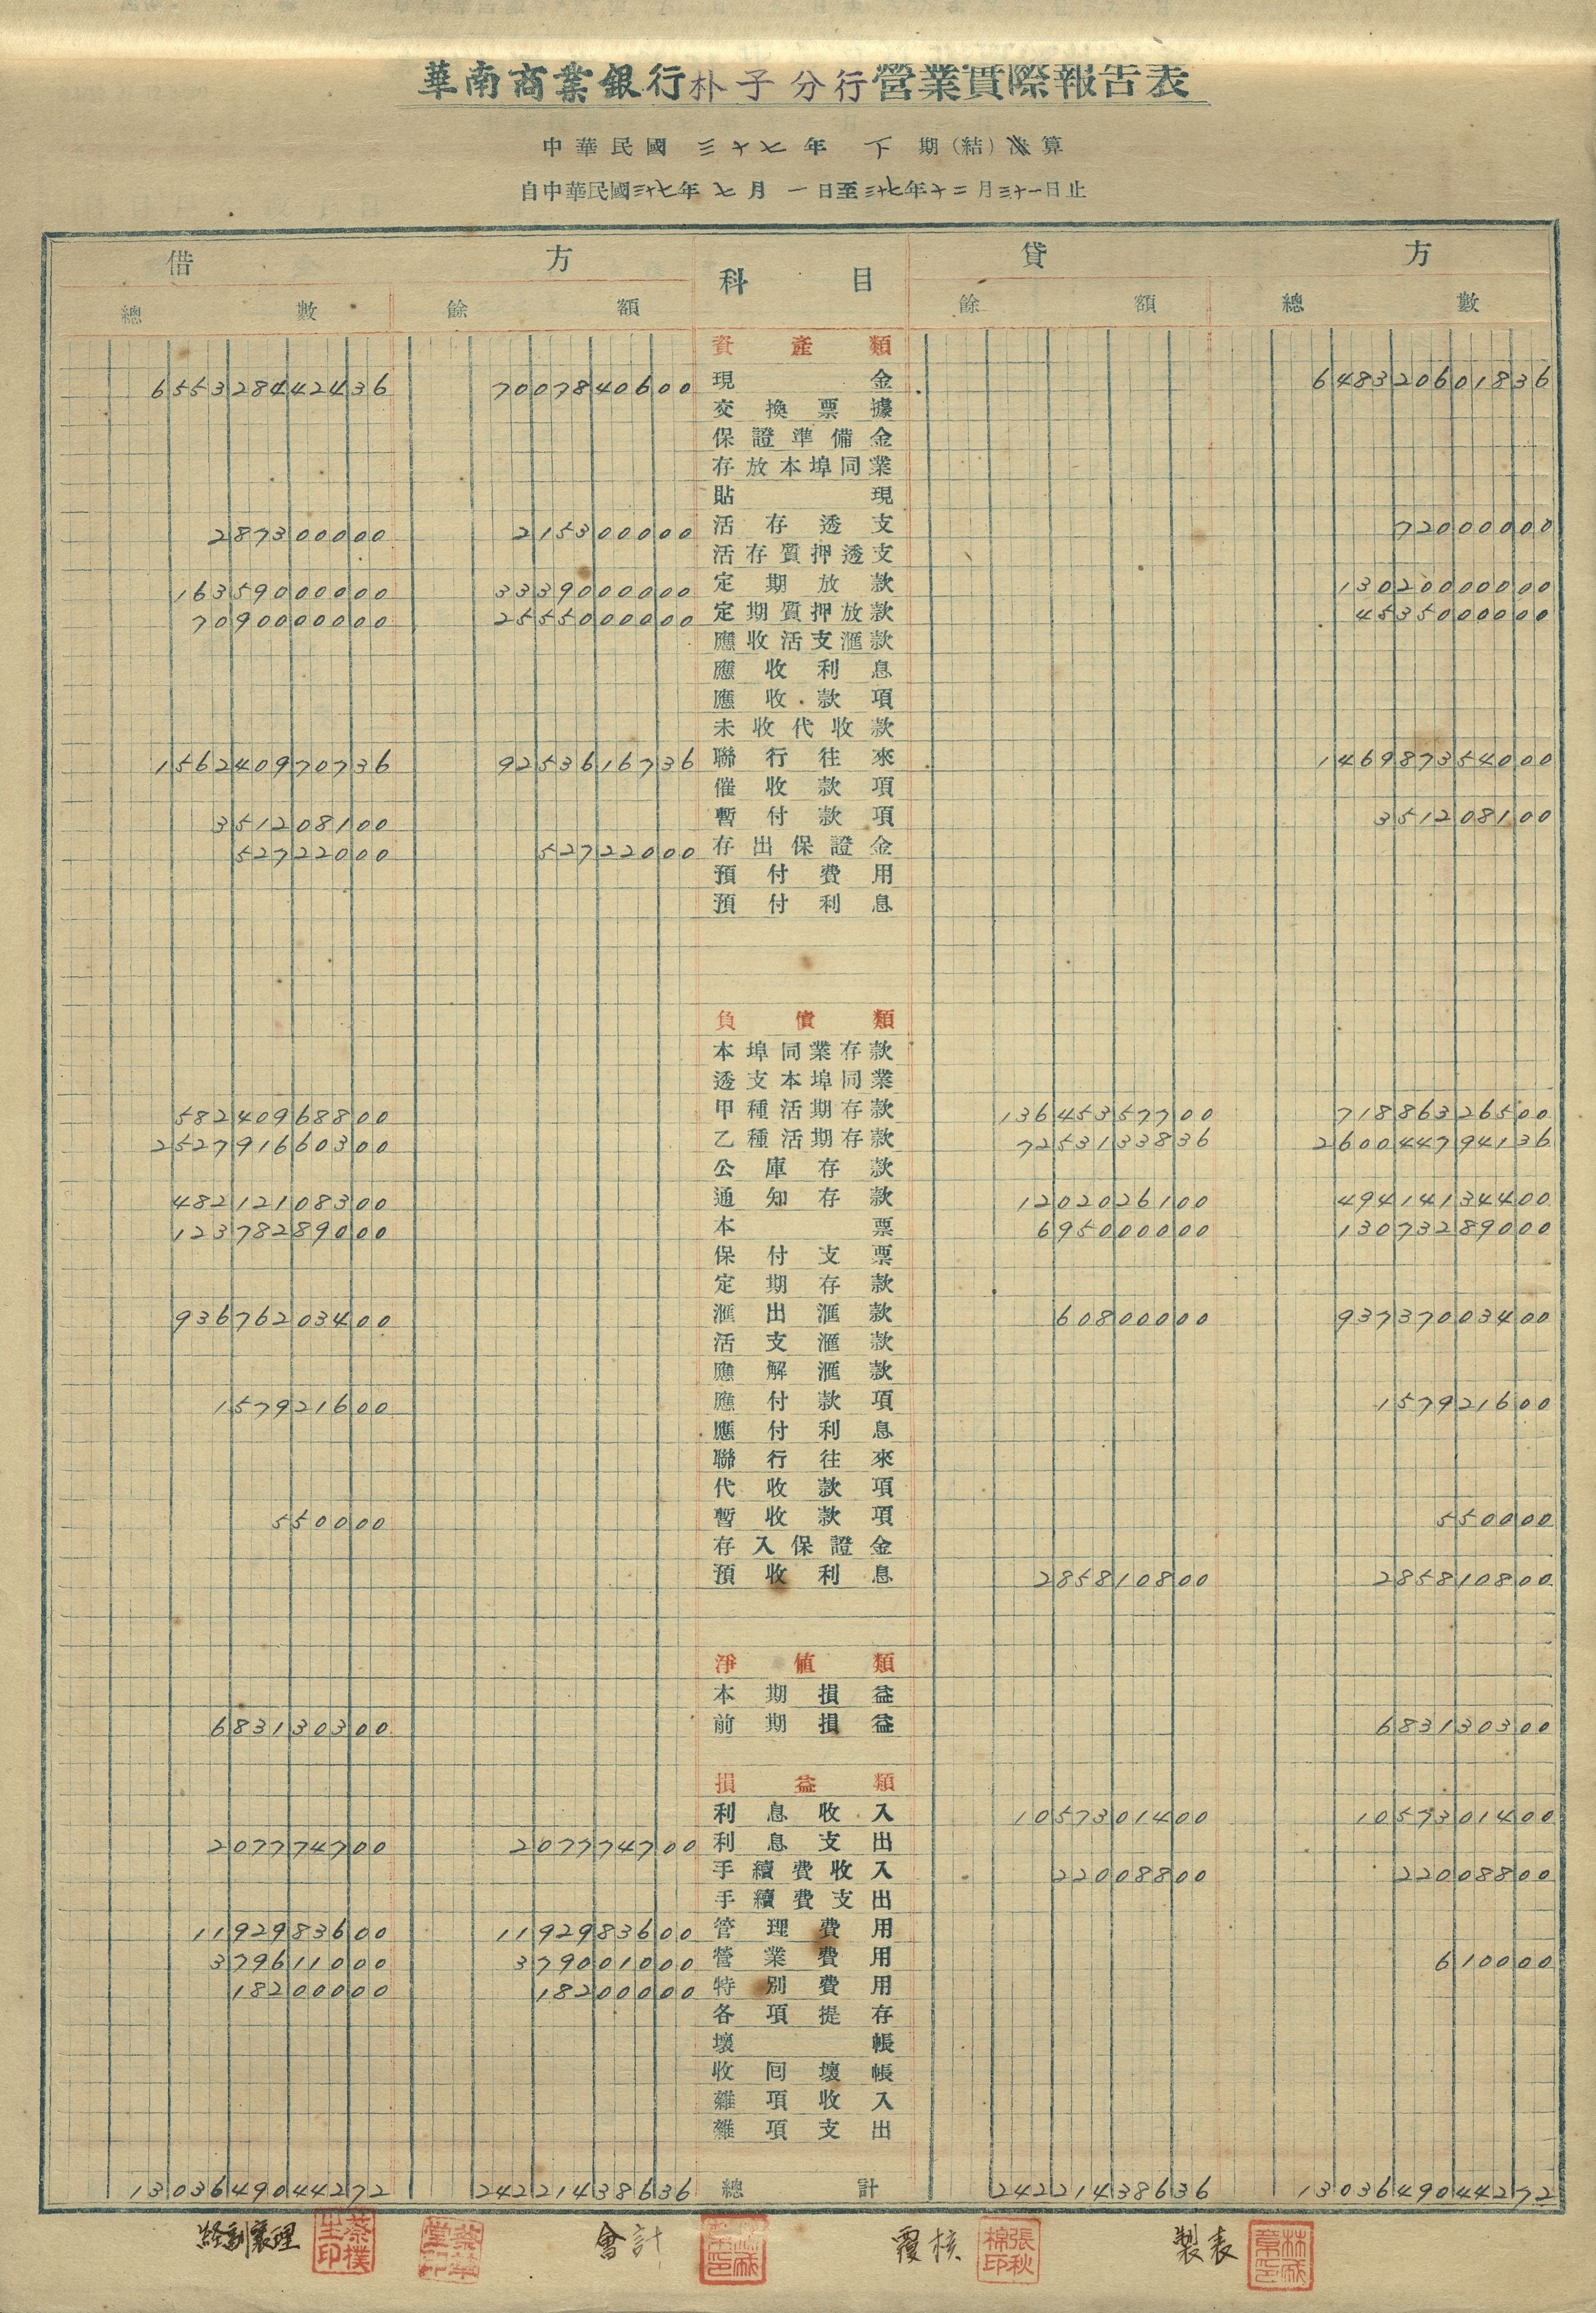 華南商業銀行朴子分行營業實際報告表
中華民國 三十七 年 下 期(結)決算
自中華民國三十七年 七 月 一 日至三十七年十二月三十一日止
借 方 科 目 貸 方
總 數 餘 額 餘 額 總 數
資產類
655328442436 7007840600 現金 648320601836
交換票據
保證準備金
存放本埠同業
貼現
287300000 215300000 活存透支 72000000
活存質押透支
16359000000 3339000000 定期放款 13020000000
7090000000 2555000000 定期質押放款 4535000000
應收活支滙款
應收利息
應收款項
未收代收款
156240970736 9253616736 聯行往來 146987354000
催收款項
351208100 暫付款項 351208100
52722000 52722000 存出保證金
預付費用
預付利息
負債類
本埠同業存款
透支本埠同業
58240968800 甲種活期存款 13645357700 71886326500
252791660300 乙種活期存款 7253133836 260044794136
公庫存款
48212108300 通知存款 1202026100 49414134400
12378289000 本票 695000000 13073289000
保付支票
定期存款
93676203400 滙出滙款 60800000 93737003400
活支滙款
應解滙款
157921600 應付款項 157921600
應付利息
聯行往來
代收款項
550000 暫收款項 550000
存入保證金
預收利息 285810800 285810800
淨值類
本期損益
683130300 前期損益 683130300
損益類
利息收入 1057301400 1057301400
207774700 207774700 利息支出
手續費收入 22008800 22008800
手續費支出
1192983600 1192983600 管理費用
379611000 379001000 營業費用 610000
18200000 18200000 特別費用
各項提存
壞帳
收囘壞帳
雜項收入
雜項支出
1303649044272 24221438636 總計 24221438636 1303649044272
經副襄理 蔡樸生印 會計 覆核 張秋棉印 製表